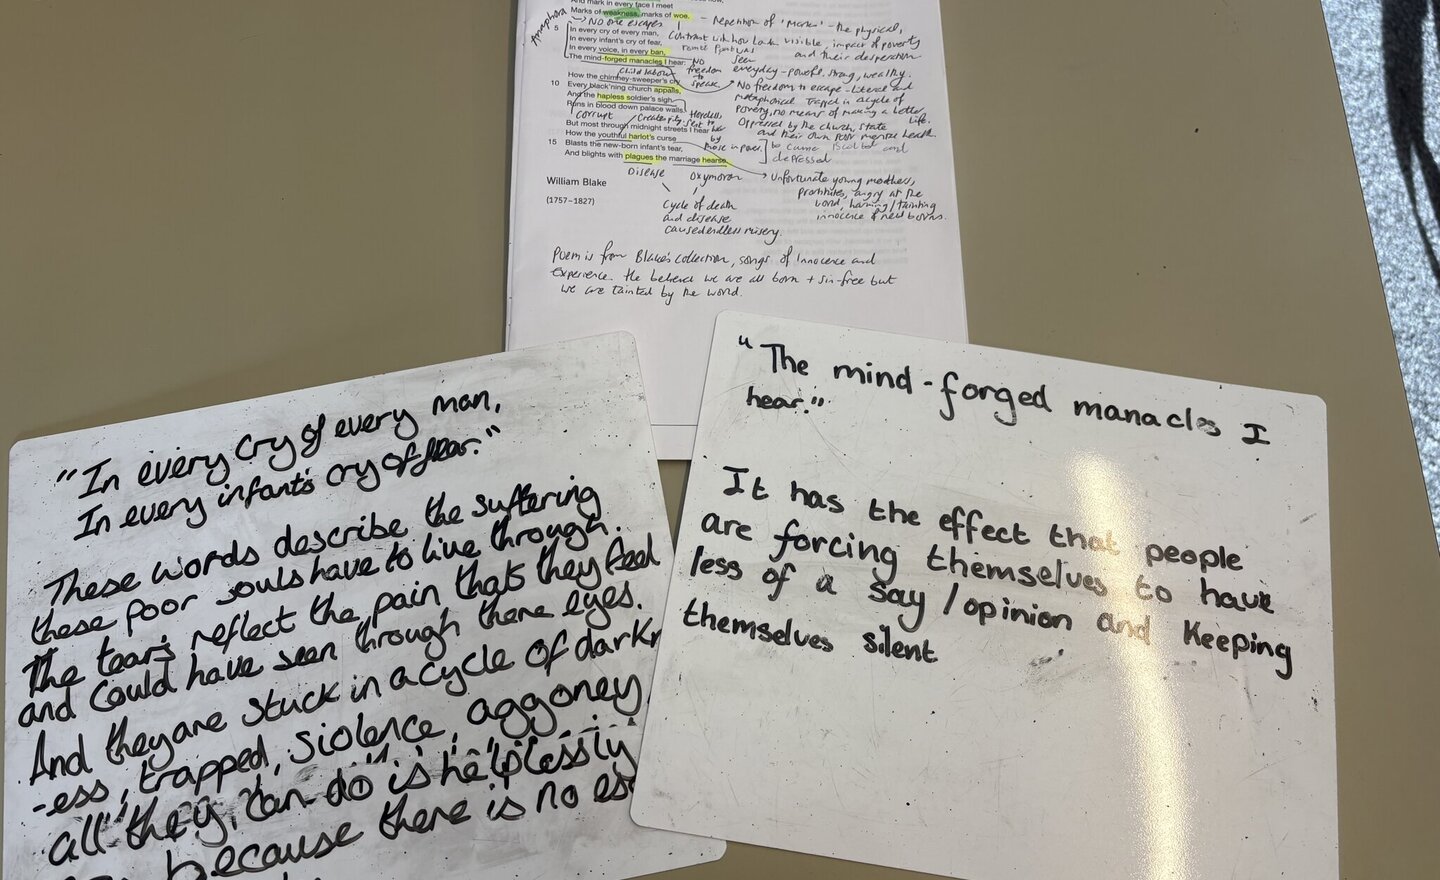 And mark in every face I meet
Marks of weakness, marks of woe.
Anaphora
→ No one escapes
- Repetition of 'marks' - the physical,
visible, impact of poverty
and their desperation
5 In every cry of every man,
In every infant's cry of fear,
In every voice, in every ban,
The mind-forged manacles I hear:
Contrast with how
seen
everyday - powerful, strong, wealthy.
No
freedom
to
speak
Child labour
How the chimney-sweeper's cry
10 Every black'ning church appalls,
And the hapless soldier's sigh
Runs in blood down palace walls.
No freedom to escape - literal and
metaphorical trapped in a cycle of
poverty, no means of making a better
life.
Oppressed by the church, state
and their own poor mental health
corrupt
by
those in power.
depressed
But most through midnight streets I hear
How the youthful harlot's curse
15 Blasts the new-born infant's tear,
And blights with plagues the marriage hearse.
Disease
Oxymoron
→ Unfortunate young mothers,
prostitutes, angry at the
world, harming/tainting
innocence of new borns.
William Blake
(1757–1827)
Cycle of death
and disease
caused endless misery.
Poem is from Blake's collection, songs of Innocence and
Experience. He believed we are all born + sin-free but
we are tainted by the world.
"In every cry of every man,
In every infants cry of fear."
These words describe the suffering
these poor souls have to live through.
The tears reflect the pain thats they feel
and could have seen through there eyes.
And they are stuck in a cycle of darkn
-ess, trapped, siolence, aggoney
all they can do is helplessly
because there is no es
"The mind-forged manacles I
hear."
It has the effect that people
are forcing themselves to have
less of a say/opinion and keeping
themselves silent